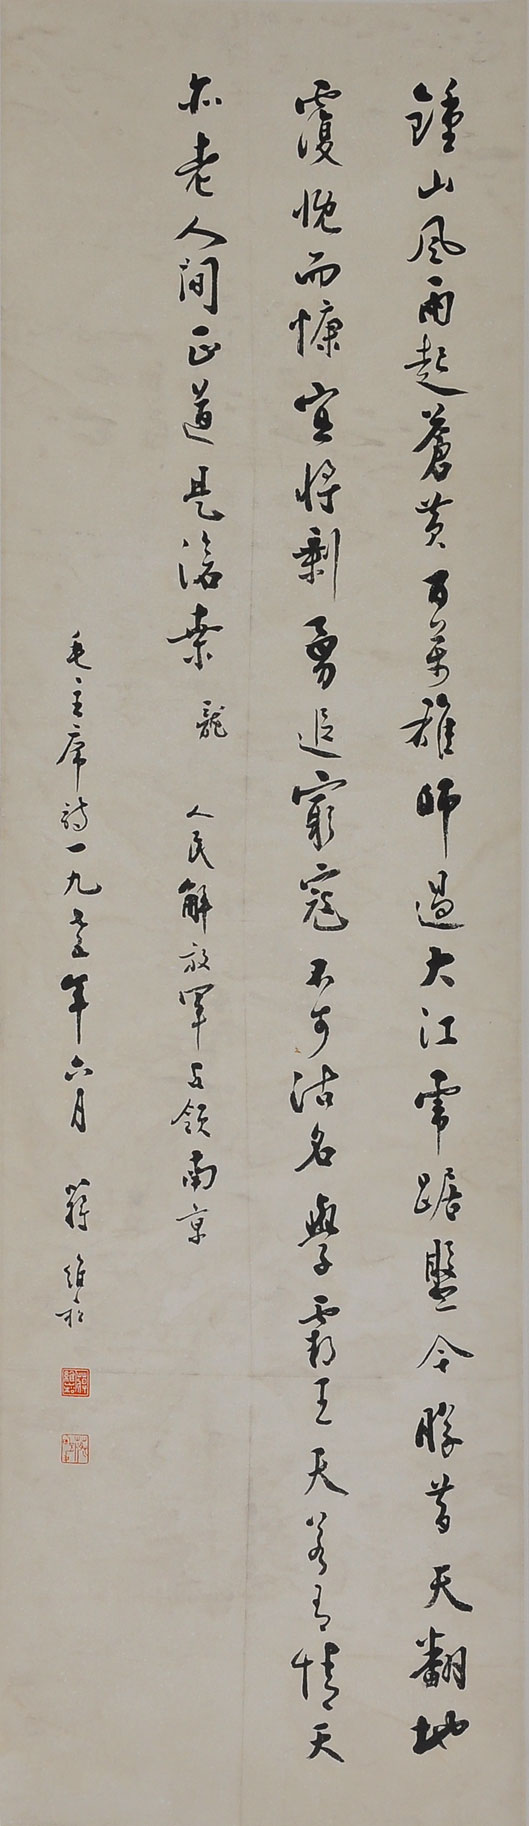 鍾山風雨起蒼黄百萬雄師過大江虎踞盤今勝昔天翻地
覆慨而慷宜將剩勇追窮寇不可沽名學霸王天若有情天
亦老人間正道是滄桑 龍 人民解放軍占領南京
毛主席詩一九七三年六月 蔣維崧